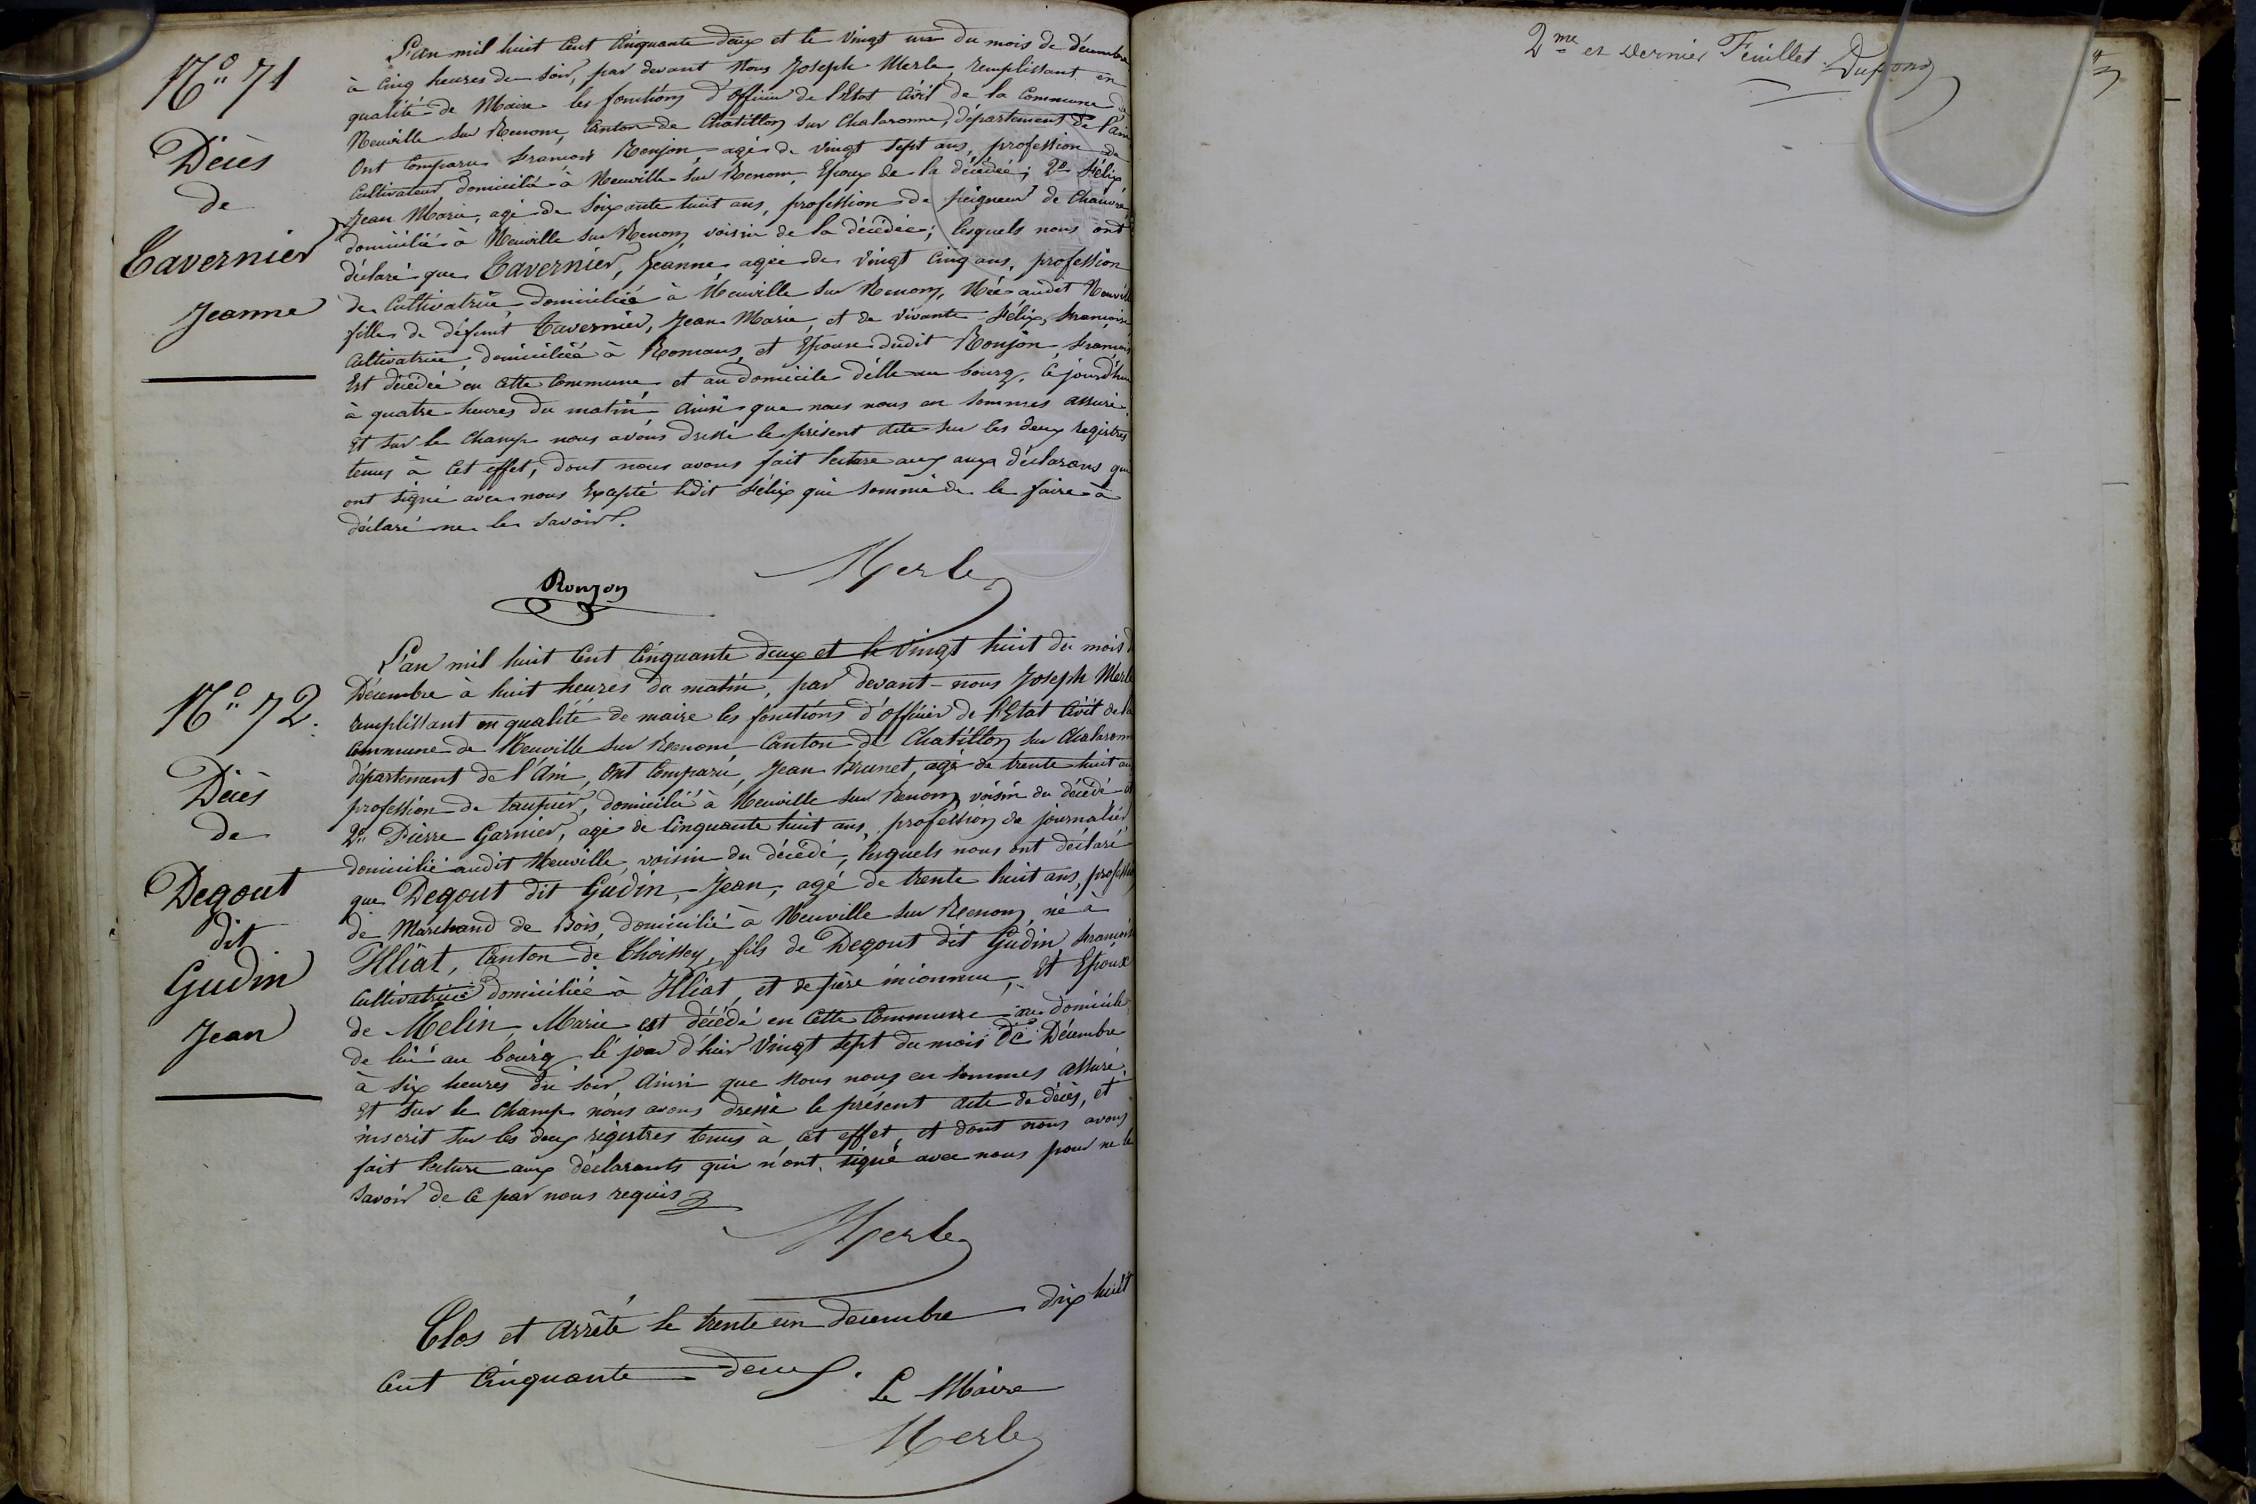 N° 71
Décès
de
Tavernier
Jeanne
L'an mil huit Cent Cinquante deux et le Vingt un du mois de décembre
à Cinq heures du soir, par devant Nous Joseph Merle, remplissant en
qualité de Maire les fonctions d'officier de l'Etat Civil de la Commune de
Neuville sur Renom, Canton de Chatillon sur Chalaronne, département de l'ain
Ont Comparu François Ronjon agé de vingt sept ans, profession de
Cultivateur domicilié à Neuville sur Renom, Epoux de la décédée; 2° Félix,
Jean Marie, agé de Soixante huit ans, profession de peigneur de Chanvre,
domicilié à Neuville sur Renom, voisin de la décédée; lesquels nous ont
déclaré que Tavernier, Jeanne agée de Vingt Cinq ans, profession
de Cultivatrice, domiciliée à Neuville sur Renom, Née audit Neuville
fille de défunt Tavernier, Jean Marie, et de vivante Félix, Françoise
Cultivatrice, domiciliée à Romans, et Epouse dudit Ronjon, François
Est décédée en cette Commune et au domicile d'elle au bourg, Ce jourd'hui
à quatre heures du matin, ainsi que nous nous en sommes assuré.
Et sur le Champ nous avons dressé le présent acte sur les deux registres
tenus à Cet effet, dont nous avons fait lecture aux aux déclarans qui
ont signé avec nous Excepté ledit Félix qui sommé de le faire à
déclaré ne le savoir.
Ronjon
Merle
N° 72.
Décès
de
Degout
dit
Gudin
Jean
L'an mil huit Cent Cinquante deux et le Vingt huit du mois de
Décembre à huit heures du matin, par devant nous Joseph Merle
remplissant en qualité de maire les fonctions d'officier de l'Etat Civil de la
Commune de Neuville sur Renom Canton de Chatillon sur Chalaronne
département de l'Ain, Ont Comparu, Jean Brunet, agé de trente huit ans
profession de taupier, domicilié à Neuville sur Renom, voisin du décédé et
2° Pierre Garnier, agé de Cinquante huit ans, profession de journalier
domicilié audit Neuville, voisin du décédé, lesquels nous ont déclaré
que Degout dit Gudin, Jean, agé de trente huit ans, profession
de Marchand de Bois, domicilié à Neuville sur Renom, né à
Illiat, Canton de Thoissey, fils de Degout dit Gudin, Françoise
Cultivatrice domiciliée à Illiat, et de père inconnu, Et Epoux
de Melin Marie est décédé en Cette Commune au domicile
de lui au bourg le jour d'hier Vingt sept du mois de Décembre
à six heures du soir ainsi que Nous nous en sommes assuré.
Et sur le Champ nous avons dressé le présent acte de décès, et
inscrit sur les deux régistres tenus à cet effet, et dont nous avons
fait lecture aux déclarants qui n'ont signé avec nous pour ne le
savoir de ce par nous requis
Merle
Clos et arrêté le trente un décembre dix huit
Cent Cinquante deux.
Le Maire
Merle
2me et dernier Feuillet. Dupond